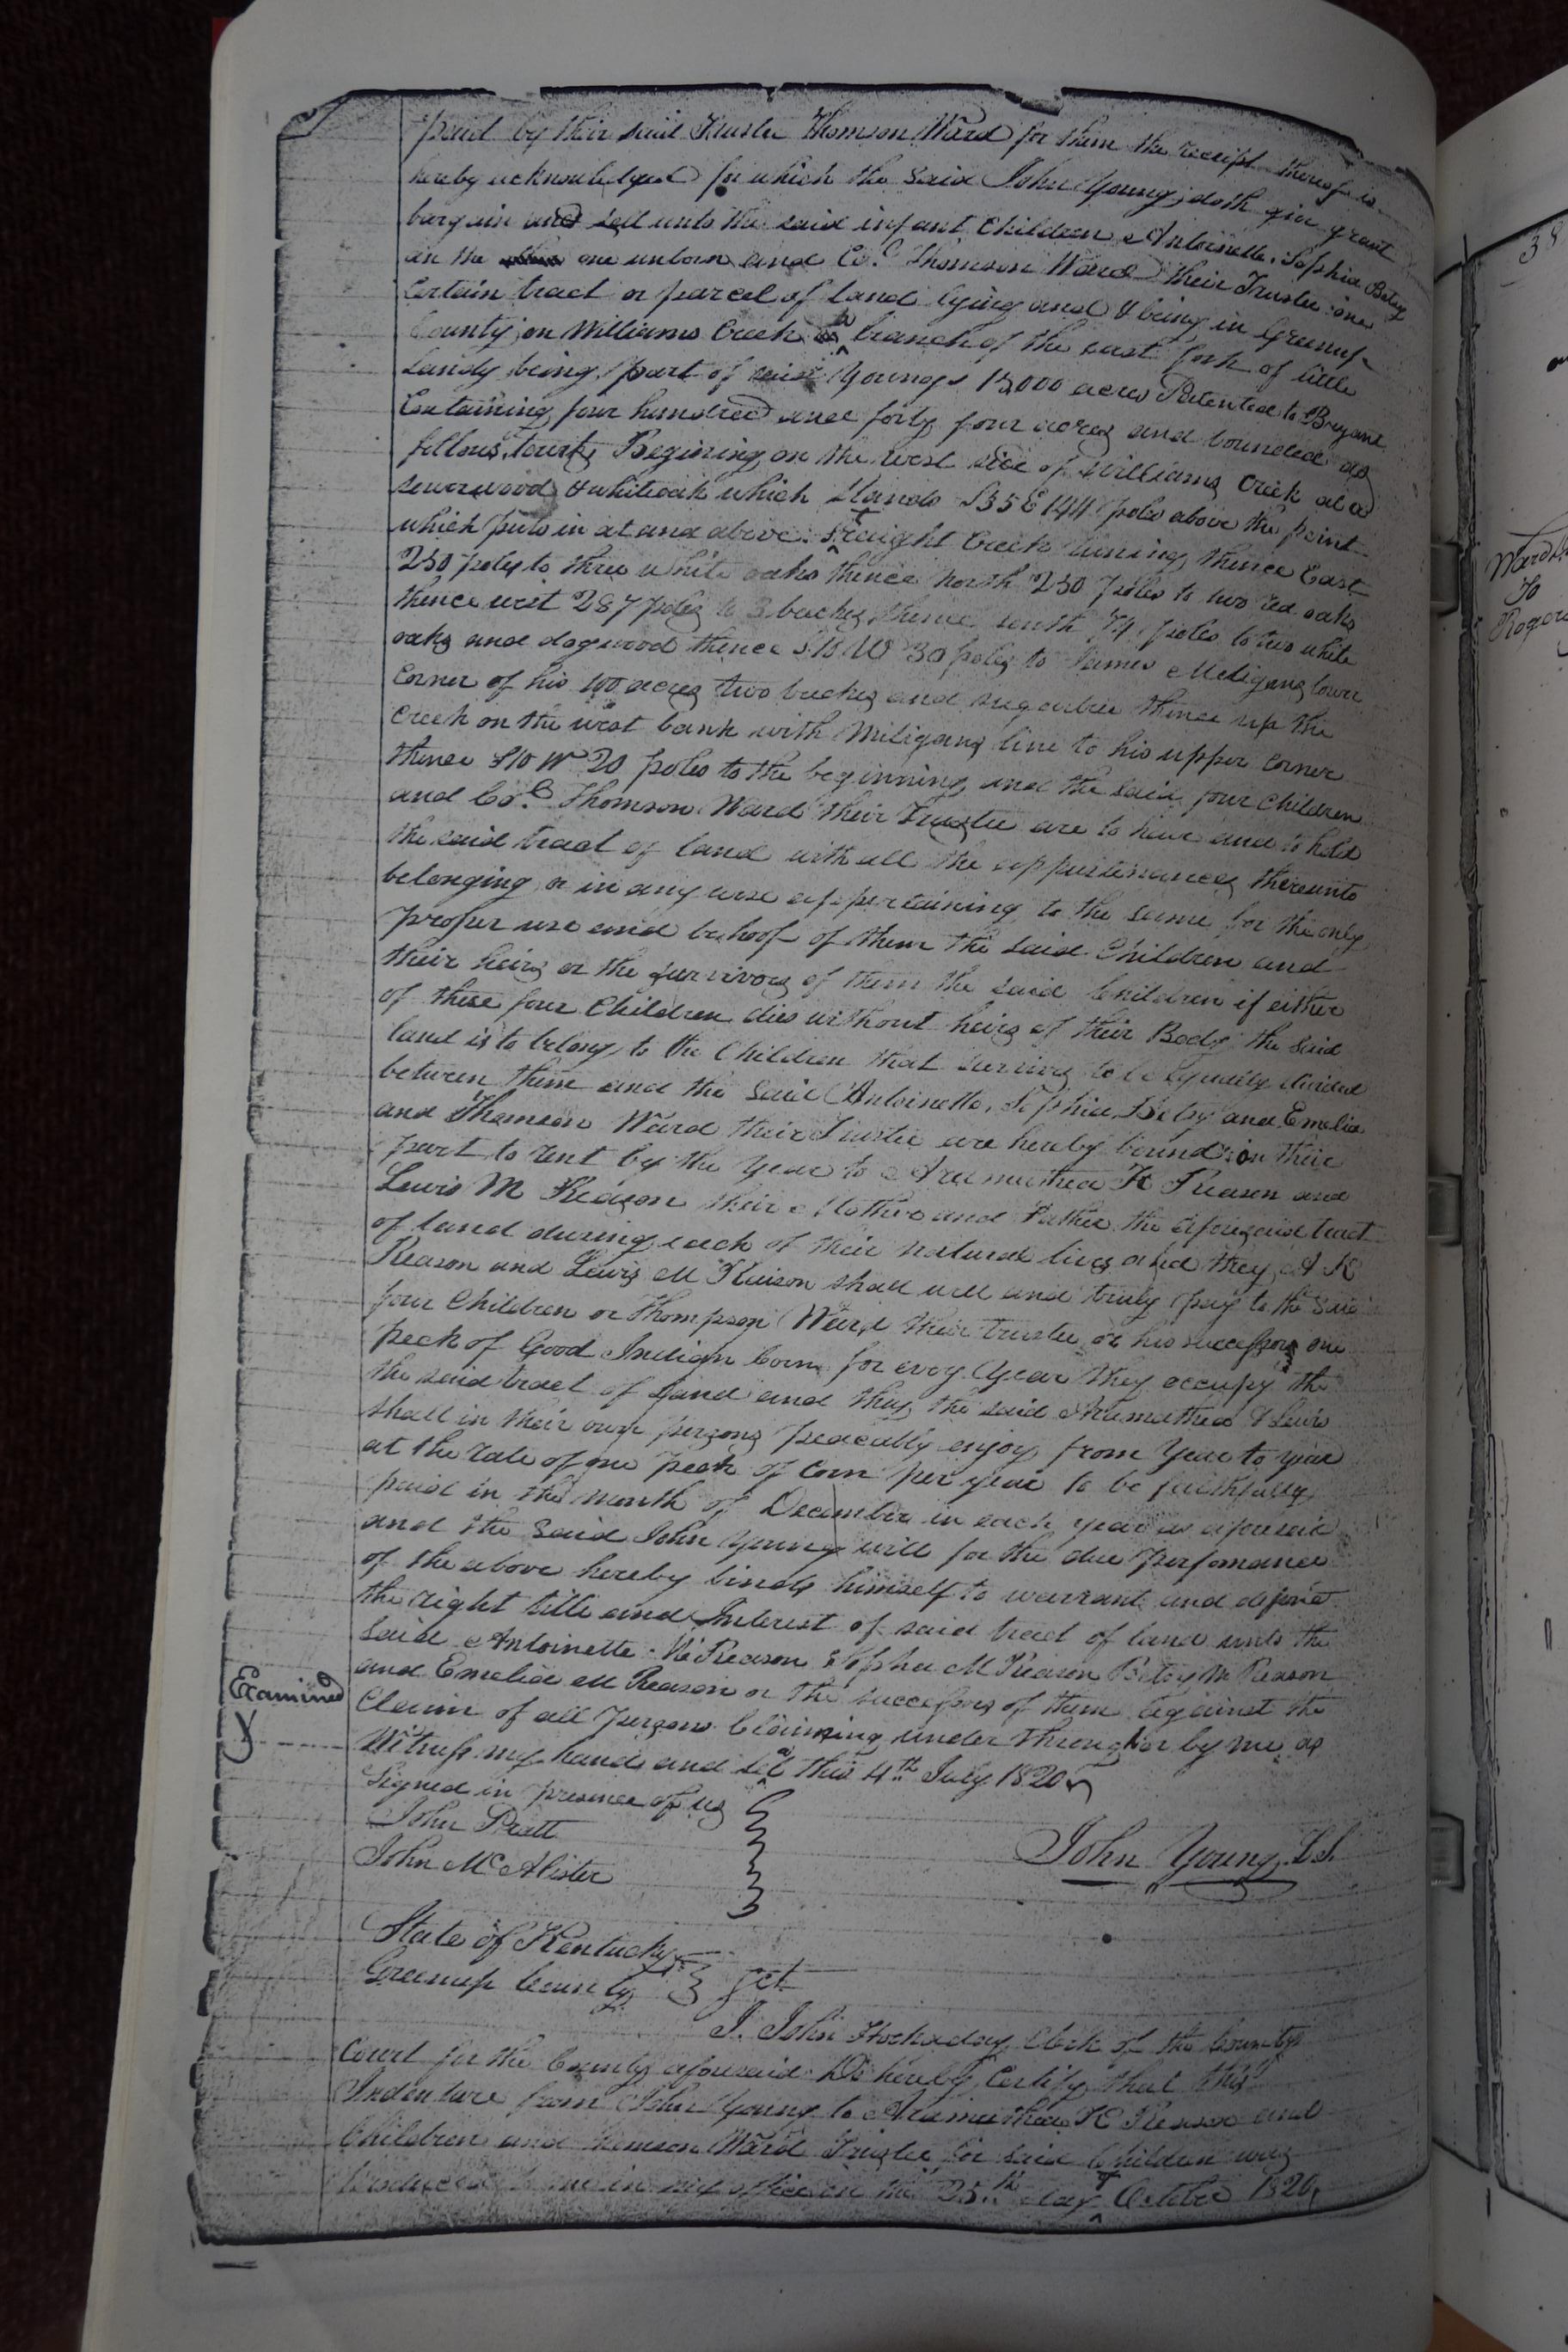 paid by their said Trustee Thomson Ward for them the receipt thereof is
hereby acknowledged for which the said John Young doth give grant
bargain and sell unto the said infant Children Antoinette, Sophia Betsy
an the one unborn and Col. Thomson Ward their Trustee one
Certain tract or parcel of land lying and & being in Greenup
County on Williams Creek a branch of the east fork of little
Sandy being part of Youngs 15,000 acres Patented to Bryant
Containing four hundred and forty four acres and bounded as
follows, towit, Begining on the west side of Williams Creek at a
sourwood & whiteoak which stands S35E 144 poles above the point
which puts in at and above Straight Creek runing thence East
250 poles to three white oaks thence north 250 poles to two red oaks
thence west 287 poles to 3 buckes thence south 74 poles to two white
oaks and dogwood thence S10W 30 poles to James Miligans lower
Corner of his 100 acres two buckes and sugartree thence up the
Creek on the west bank with Miligans line to his upper Corner
thence S10W 20 poles to the beginning and the said four Children
and Col. Thomson Ward their Trustee are to have and to hold
the said tract of land with all the appurtenances thereunto
belonging or in any wise appertaining to the same for the only
proper use and behoof of them the said Children and
their heirs or the survivors of them the said Children if either
of these four Children dies without heirs of their Body the said
land is to belong to the Children that survive to be equally divided
between them and the said Antoinette, Sophia, Betsy and Emelia
and Thomson Ward their Trustee are hereby bound on their
part to rent by the year to Aramathea K Reason and
Lewis M Reason their Mother and Father the aforesaid tract
of land during each of their natural lives and they A K
Reason and Lewis M Reason shall well and truly pay to the said
four Children or Thompson Ward their trustee or his successors one
peck of Good Indian Corn for evry year they occupy the
the said tract of land and they the said Aramathea & Lewis
shall in their own persons peaceably enjoy from year to year
at the rate of one peck of corn per year to be faithfully
paid in the month of December in each year as aforesaid
and the said John Young will for the due perfomance
of the above hereby binds himself to warrant and defend
the right title and Interest of said tract of land unto the
said Antoinette Reason Sophia M Reason Betsy M Reason
and Emelia M Reason or the successors of them against the
Examined
Claim of all persons Claiming under through or by me as
Witness my hand and seal this 4th July 1820
Signed in presence of us
John Pratt
John McAlister
John Young L.S.
State of Kentucky
Greenup County } Sct
I. John Hockaday Clerk of the County
Court for the County aforesaid Do hereby Certify that this
Indenture from John Young to Aramathea K Reason and
Children and Thomson Ward Trustee for said Children was
Produced to me in my office on the 25th day of October 1820,
38
Ward
To
Rogers